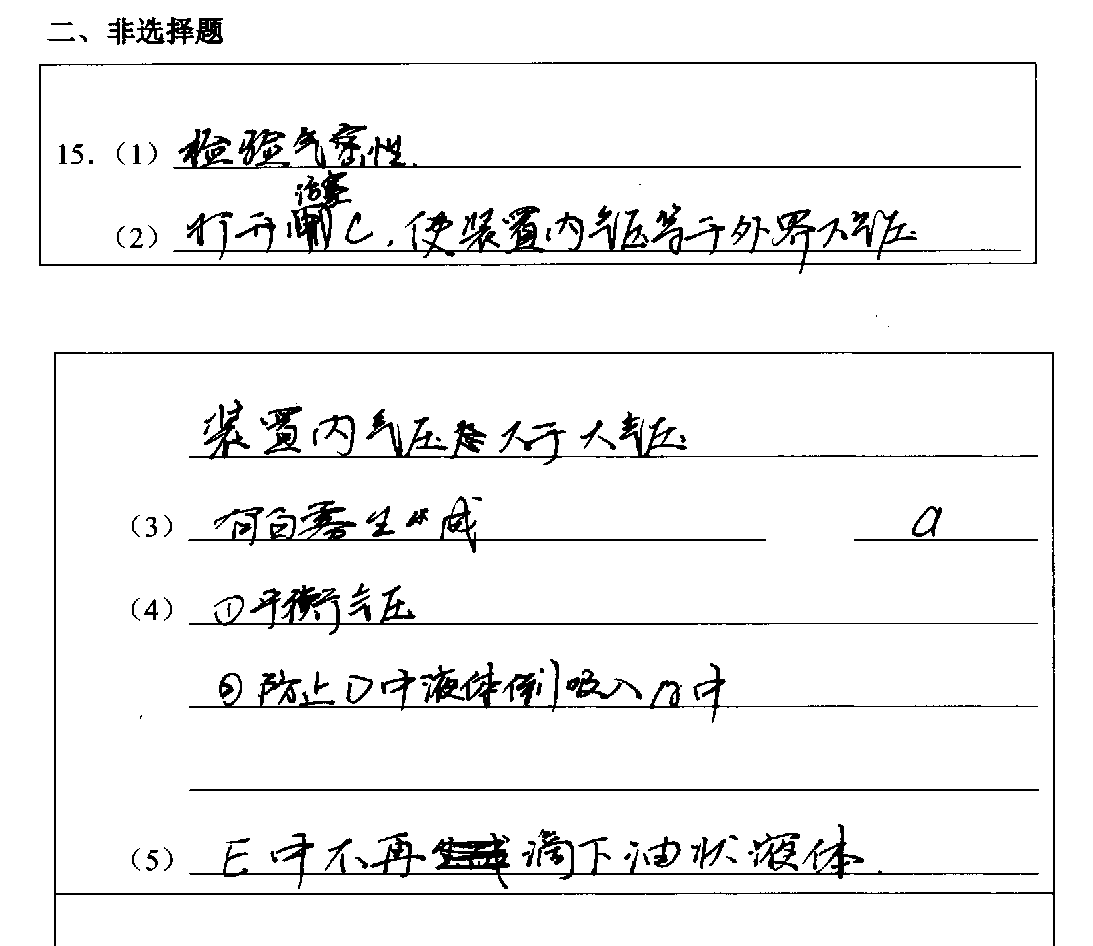 二、非选择题
15.（1）检验气密性.
活塞
（2）打开 C，使装置内气压等于外界大气压
装置内气压 大于大气压
（3）有白雾生成 a
（4）①平衡气压
②防止D中液体倒吸入 中
（5）E中不再 滴下油状液体.